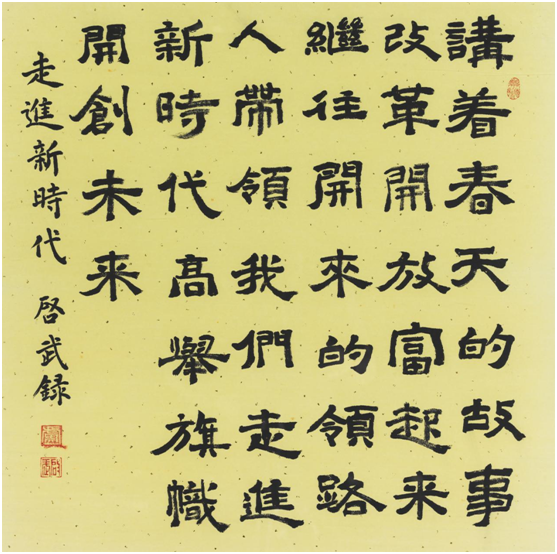 講着春天的故事
改革開放富起来
繼往開來的領路
人帶領我們走進
新時代高舉旗幟
開創未来
走進新時代 啓武録